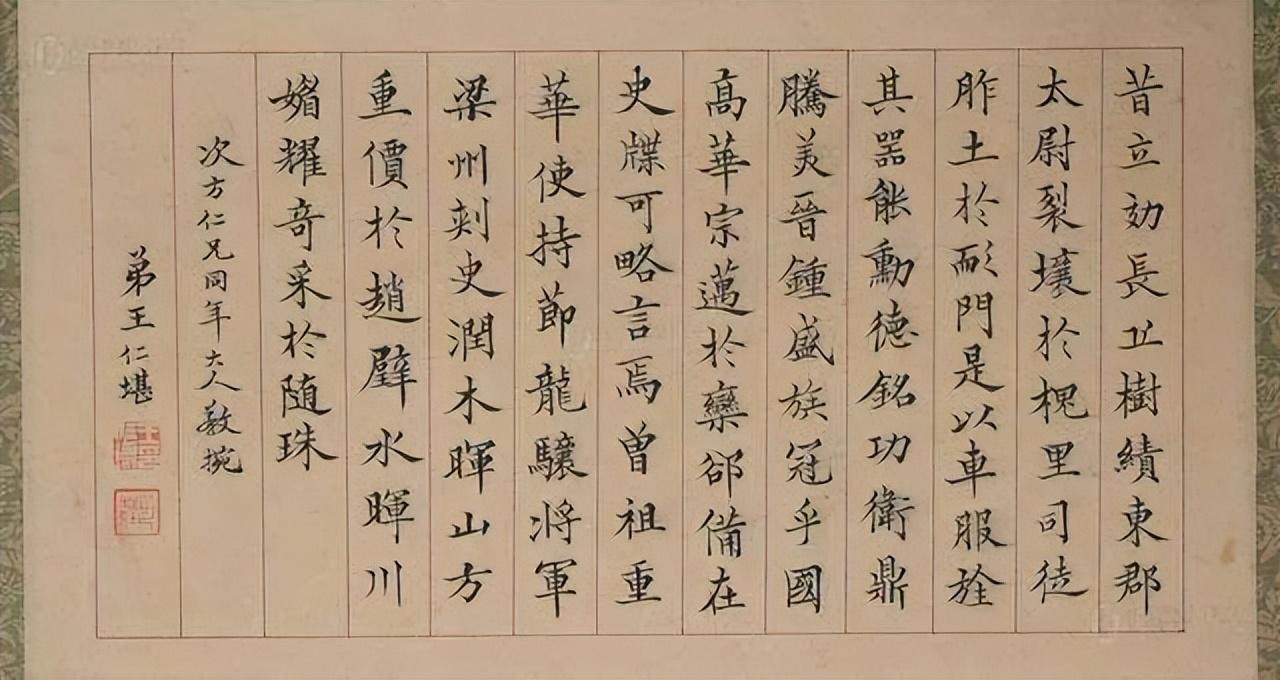 昔立効長丘樹績東郡
太尉裂壤於槐里司徒
胙土於耏門是以車服旌
其器能勳德銘功衛鼎
騰美晉鍾盛族冠乎國
高華宗邁於欒郤備在
史牒可略言焉曾祖重
華使持節龍驤將軍
梁州刺史潤木暉山方
重價於趙璧水暉川
媚耀奇采於随珠
次方仁兄同年大人教捥
弟王仁堪